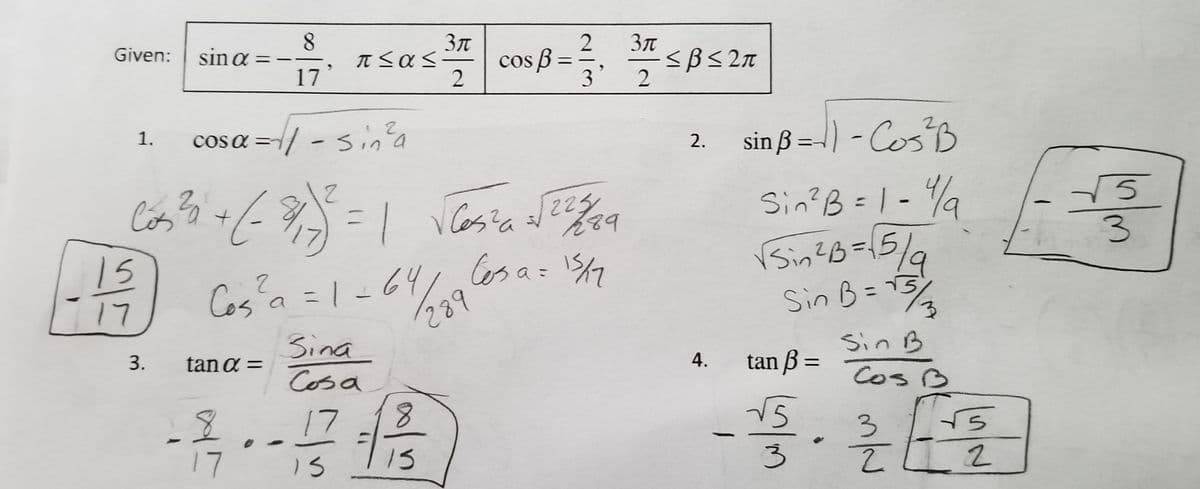 Given: sin α = -8/17, π ≤ α ≤ 3π/2 cos β = 2/3, 3π/2 ≤ β ≤ 2π
1. cos α = √1 - sin²a
Cos²a + (-8/17)² = 1 √Cos²a = √225/289
Cos²a = 1 - 64/289 Cos a = 15/17
-15/17
2. sin β = √1 - Cos²B
Sin²B = 1 - 4/9
√Sin²B = √5/9
Sin B = √5/3
-√5/3
3. tan α = Sina/Cosa
-8/17 · -17/15 = 8/15
4. tan β = Sin B/Cos B
-√5/3 · 3/2 -√5/2